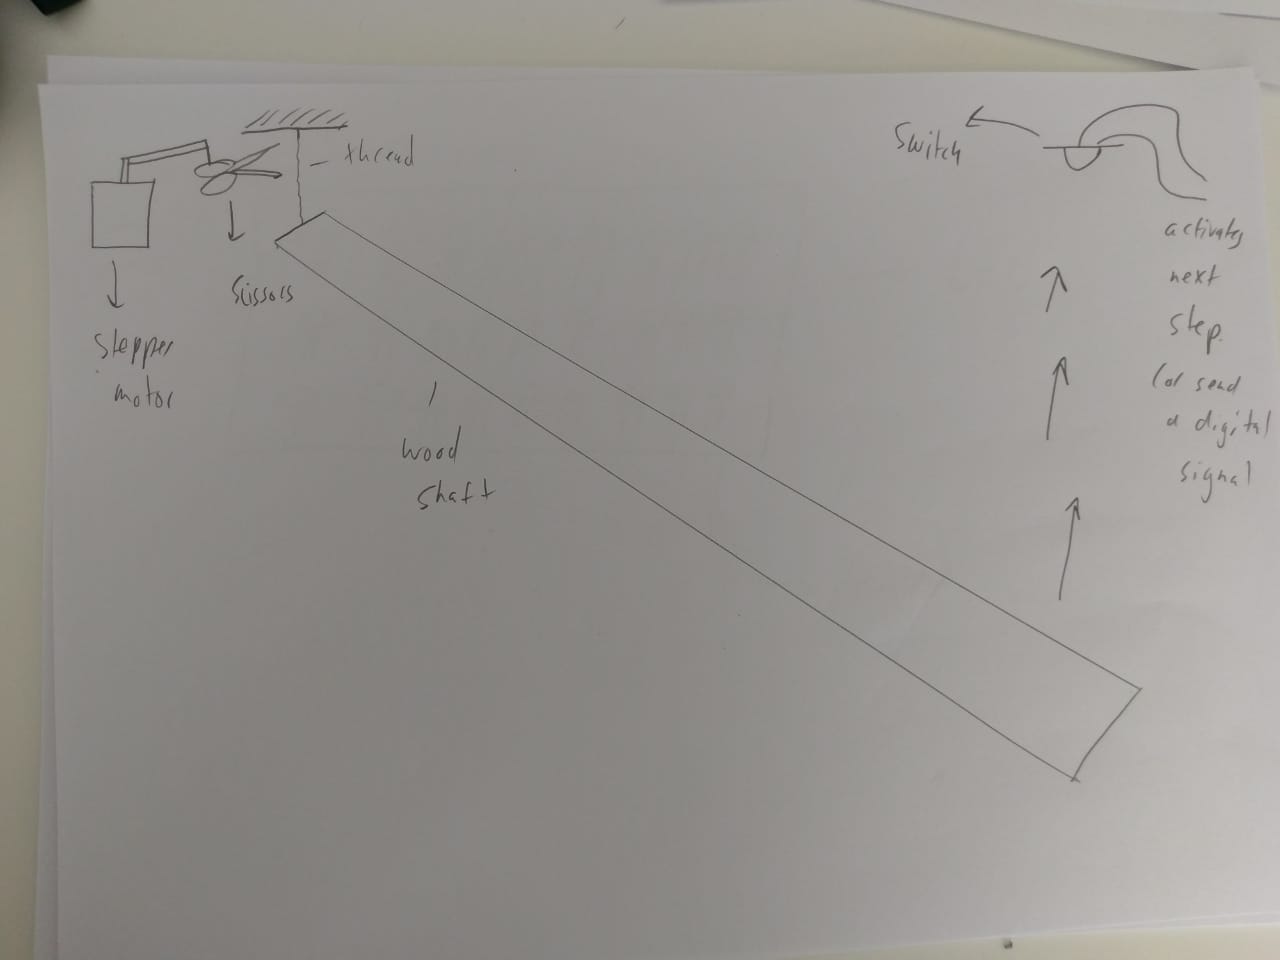 thread
Switch
Scissors
Stepper
motor
wood
shaft
activates
next
step.
(or send
a digital
signal